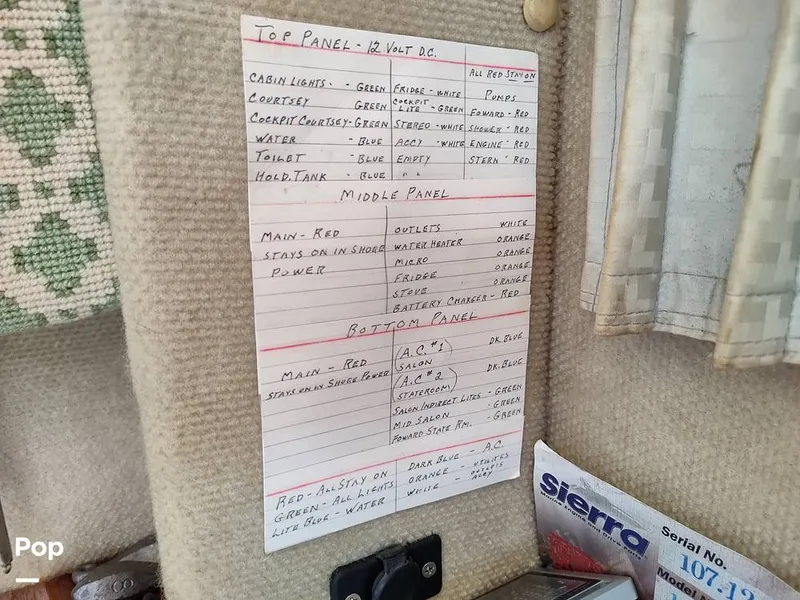 TOP PANEL - 12 VOLT D.C.
ALL RED STAY ON
CABIN LIGHTS - - GREEN FRIDGE - WHITE PUMPS
COURTSEY GREEN COCKPIT LITE - GREEN FOWARD - RED
COCKPIT COURTSEY - GREEN STEREO - WHITE SHOWER - RED
WATER - BLUE ACCY - WHITE ENGINE - RED
TOILET - BLUE EMPTY STERN - RED
HOLD. TANK - BLUE " "
MIDDLE PANEL
MAIN - RED OUTLETS WHITE
STAYS ON IN SHORE WATER HEATER ORANGE
POWER MICRO ORANGE
FRIDGE ORANGE
STOVE ORANGE
BATTERY CHARGER - RED
BOTTOM PANEL
MAIN - RED (A.C. #1) SALON DK. BLUE
STAYS ON IN SHORE POWER (A.C #2) STATEROOM DK. BLUE
SALON INDIRECT LITES - GREEN
MID. SALON - GREEN
FOWARD STATE RM. - GREEN
RED - ALL STAY ON DARK BLUE - A.C.
GREEN - ALL LIGHTS ORANGE - UTILITIES
LITE BLUE - WATER WHITE - OUTLETS ACCY
Sierra
Marine Engine and Drive Parts
Serial No.
107.12
Model N
Pop